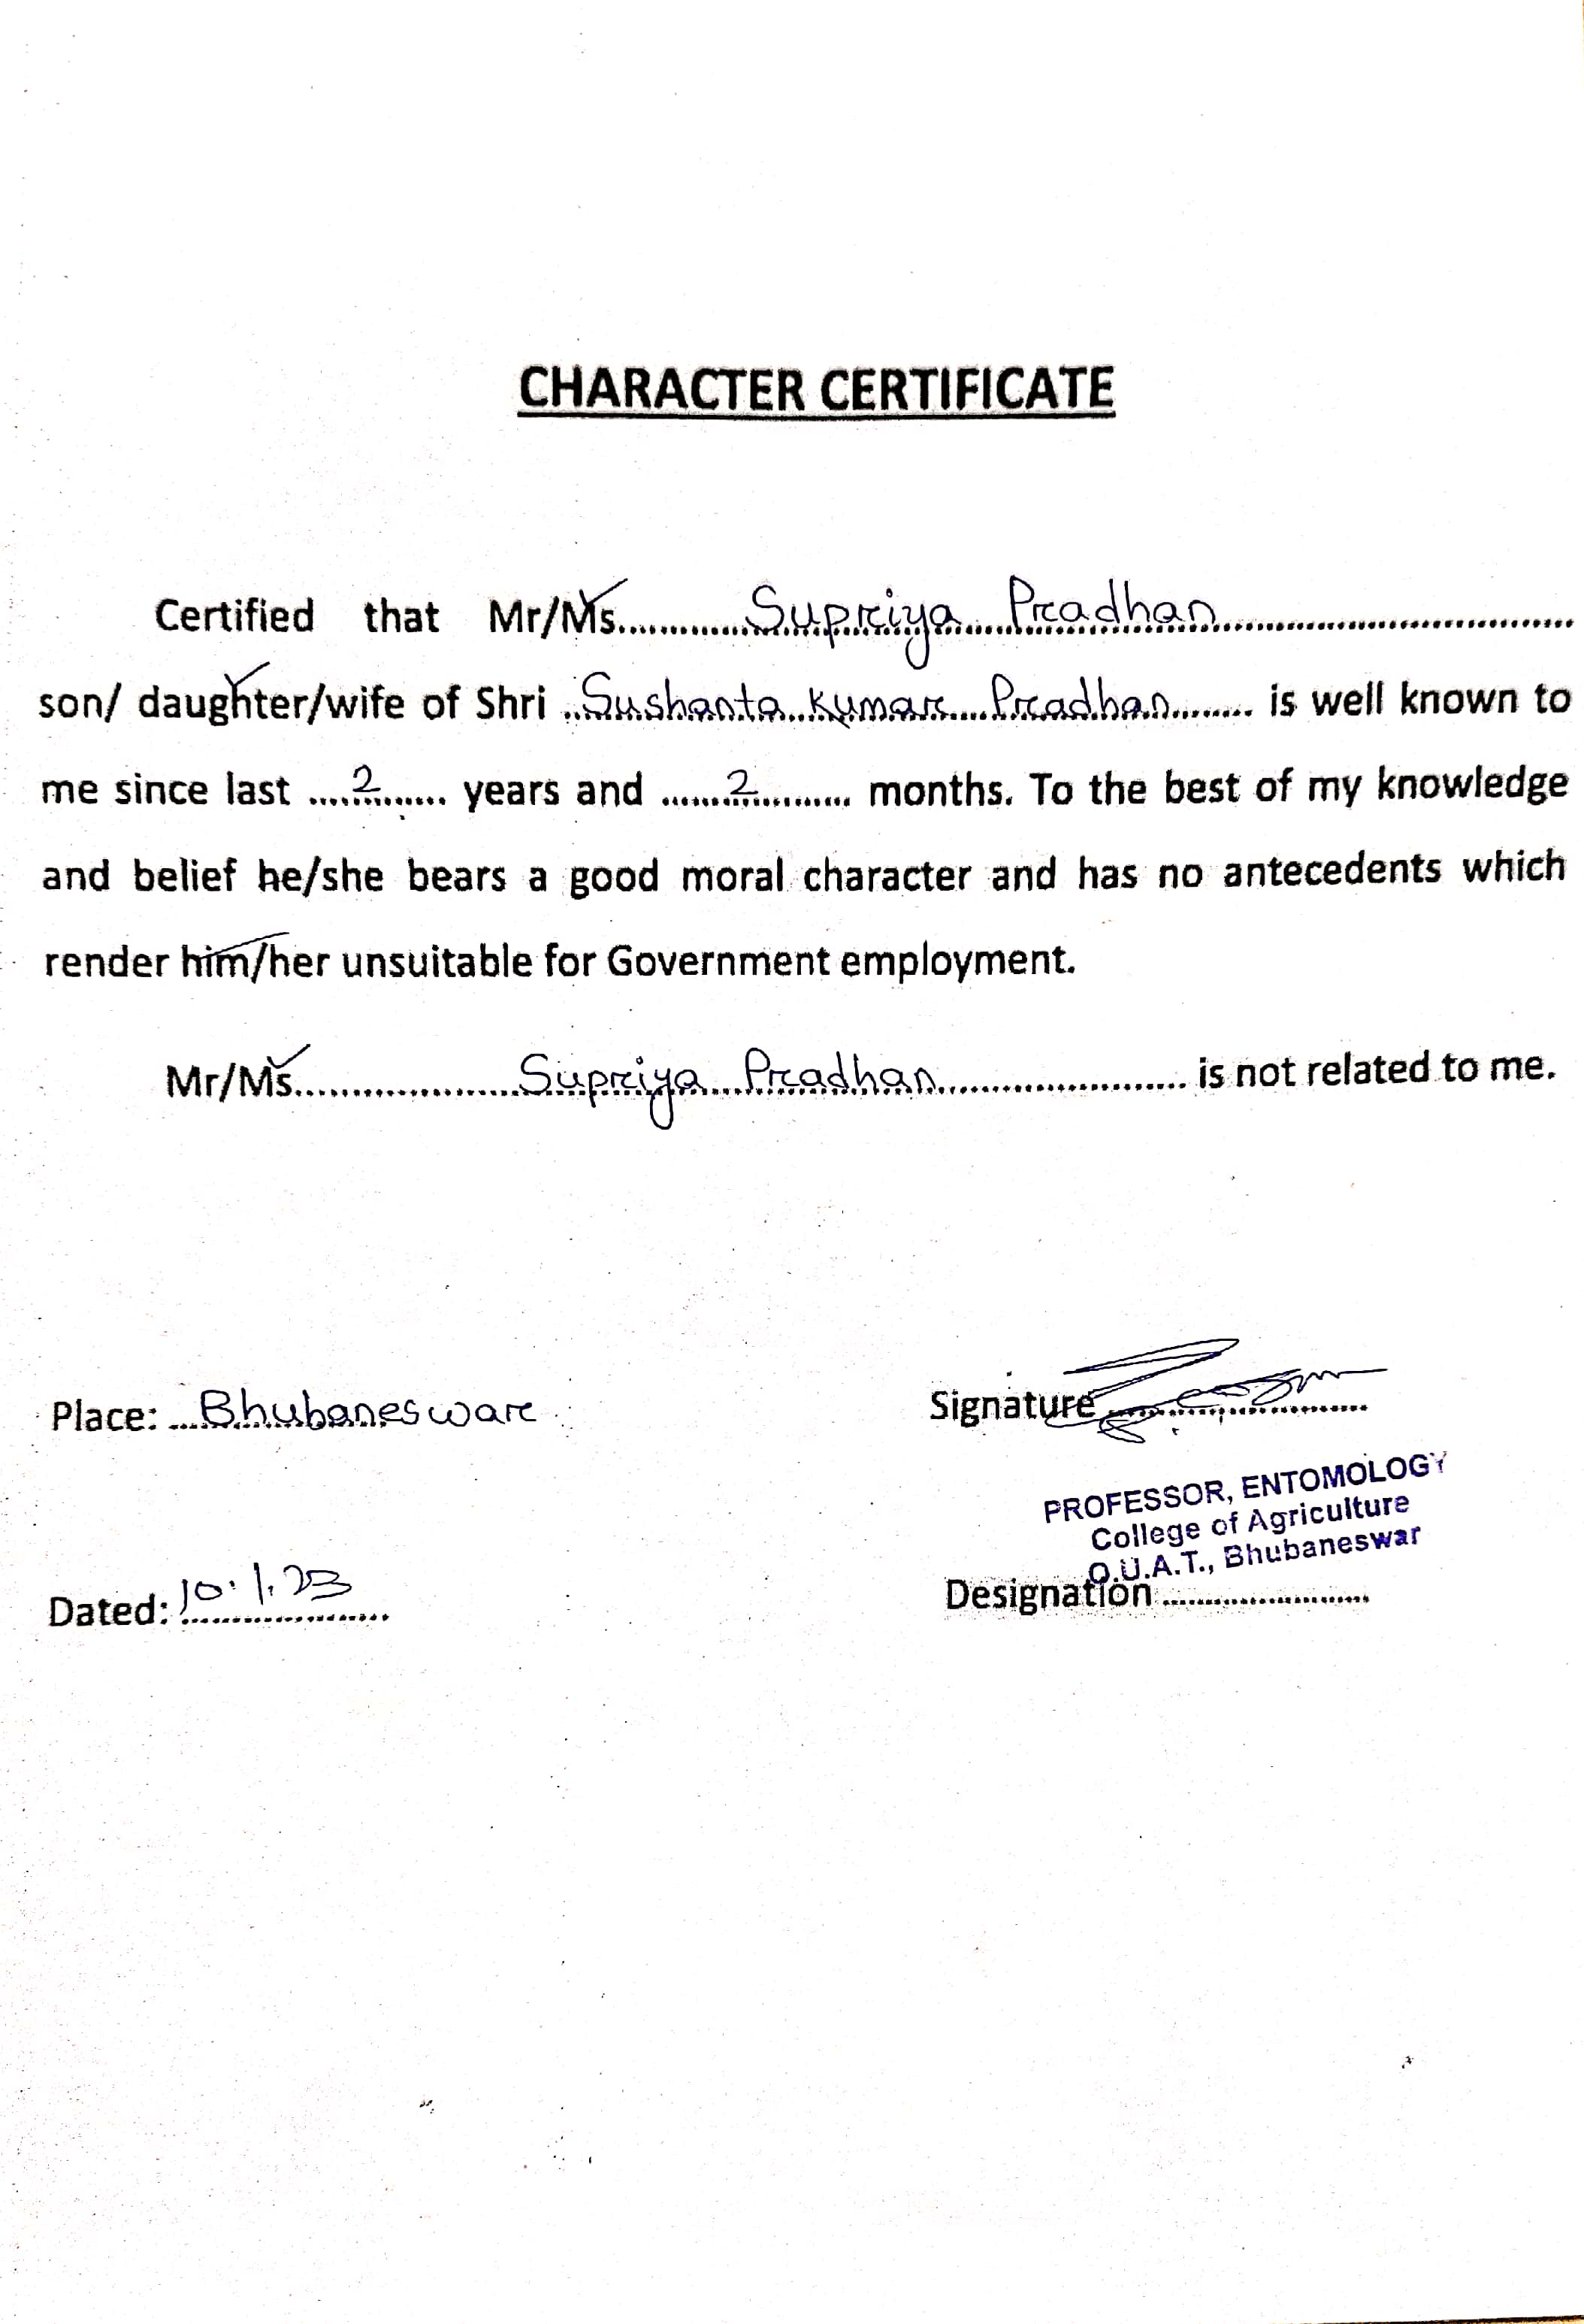 CHARACTER CERTIFICATE
Certified that Mr/Ms.............Supriya Pradhan..............................
son/ daughter/wife of Shri ..Sushanta Kumar Pradhan........ is well known to
me since last ....2....... years and ......2.......... months. To the best of my knowledge
and belief he/she bears a good moral character and has no antecedents which
render him/her unsuitable for Government employment.
Mr/Ms...................Supriya Pradhan..................... is not related to me.
Place: ....Bhubaneswar
Signature.....................
PROFESSOR, ENTOMOLOGY
College of Agriculture
O.U.A.T., Bhubaneswar
Dated: 10.1.23
Designation.....................